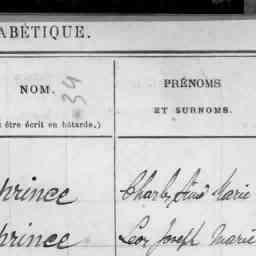 ABÉTIQUE.
NOM.
34
PRÉNOMS
ET SURNOMS.
être écrit en bâtarde.)
prince Charles Marie
prince Léon Joseph Marie